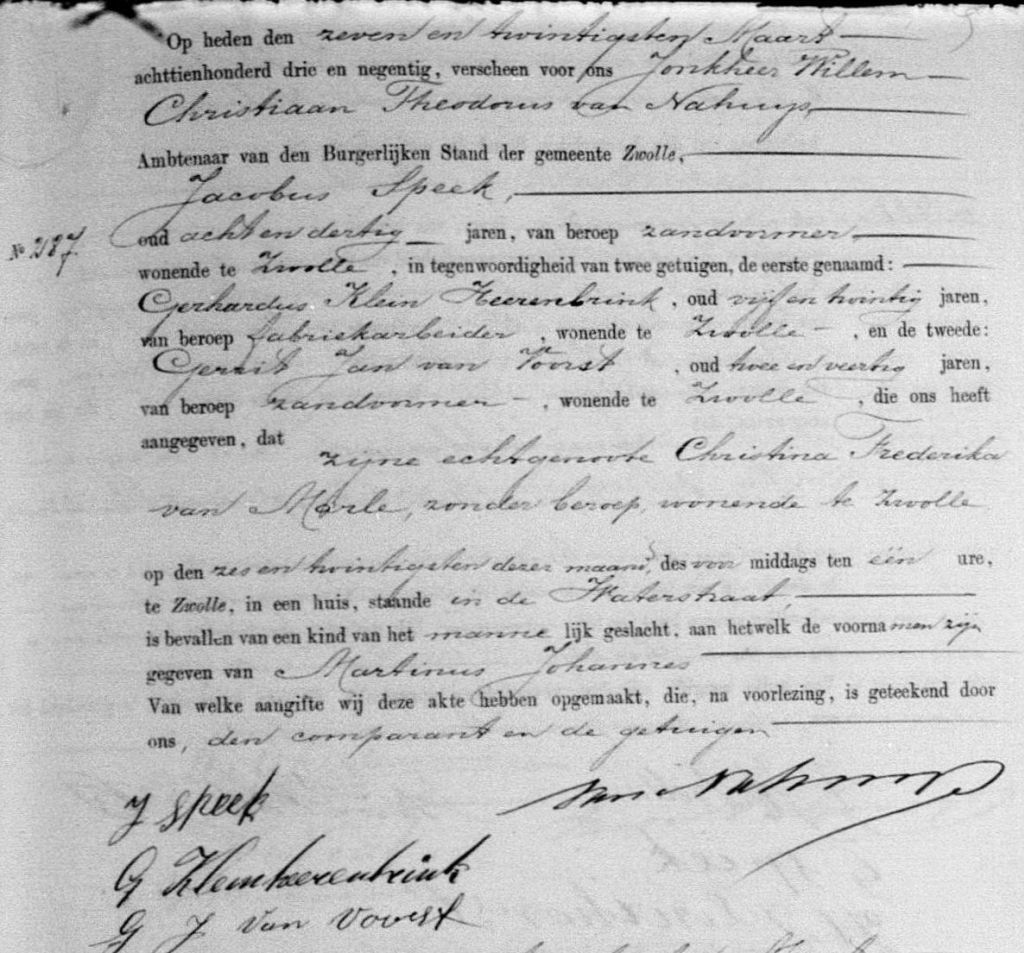 Op heden den zeven en twintigsten Maart
achttienhonderd drie en negentig, verscheen voor ons Jonkheer Willem
Christiaan Theodorus van Nahuys,
Ambtenaar van den Burgerlijken Stand der gemeente Zwolle,
Jacobus Speek,
No 287.
oud acht en dertig jaren, van beroep zandvormer,
wonende te Zwolle, in tegenwoordigheid van twee getuigen, de eerste genaamd:
Gerhardus Klein Heerenbrink, oud vijf en twintig jaren,
van beroep fabriekarbeider, wonende te Zwolle, en de tweede:
Gerrit Jan van Voorst, oud twee en veertig jaren,
van beroep zandvormer, wonende te Zwolle, die ons heeft
aangegeven, dat
zijne echtgenoote Christina Frederika
van Marle, zonder beroep, wonende te Zwolle
op den zes en twintigsten dezer maand, des voor middags ten één ure,
te Zwolle, in een huis, staande in de Waterstraat,
is bevallen van een kind van het manne lijk geslacht, aan hetwelk de voornamen zijn
gegeven van Martinus Johannes
Van welke aangifte wij deze akte hebben opgemaakt, die, na voorlezing, is geteekend door
ons, den comparant en de getuigen
J Speek
van Nahuys
G Kleinheerenbrink
G J van Voorst